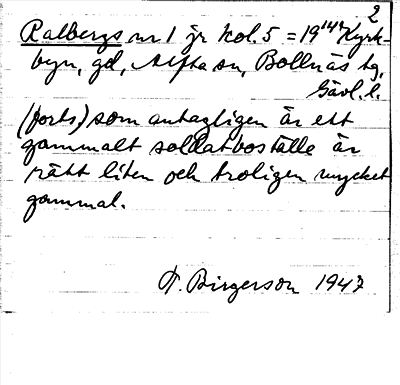 2
Ralbergs nr 1 jr kol. 5 = 19¹⁴¹ Kyrk-
byn, gd, Alfta sn, Bollnäs tg,
Gävl. l.
(forts) som antagligen är ett
gammalt soldatboställe är
rätt liten och troligen mycket
gammal.
F. Birgerson 1947